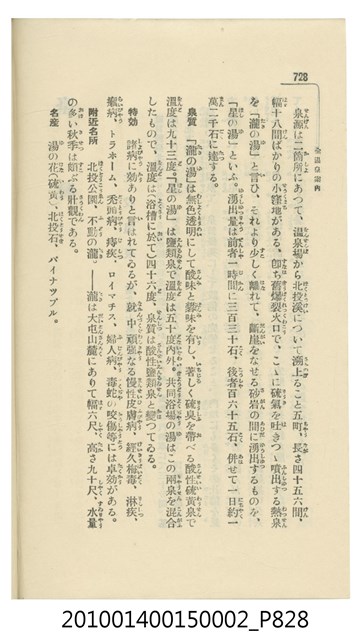 728
全國溫泉案内
泉源は二箇所にあつて、溫泉場から北投溪について溯上ること五町、長さ四十五六間、
幅十八間ばかりの小窪地がある、卽ち舊爆裂火口で、こゝに硫氣を吐きつゝ噴出する熱泉
を「瀧の湯」と言ひ、それより少しく離れて、斷崖をなせる砂岩の間に湧出するものを、
「星の湯」といふ。湧出量は前者一時間に三百三十石、後者百六十五石、併せて一日約一
萬二千石に達する。
泉質　「瀧の湯」は無色透明にして酸味と鹹味を有し、著しく硫臭を帶べる酸性硫黄泉で
溫度は九十三度。「星の湯」は鹽類泉で溫度は五十度內外。共同浴場の湯はこの兩泉を混合
したもので、溫度は（浴槽に於て）四十六度、泉質は酸性鹽類泉と變つてゐる。
特効　諸病に効ありと言はれてゐるが、就中頑強なる慢性皮膚病、經久梅毒、淋疾、
癩病、トラホーム、禿頭病、痔疾、ロイマチス、婦人病、毒蛇の咬傷等には卓効がある。
附近名所　北投公園、不動の瀧。――瀧は大屯山麓にありて幅六尺、高さ九十尺、水量
の多い秋季は頗ぶる壯觀である。
名産　湯の花（硫黄）、北投石、パイナツプル。
201001400150002_P828